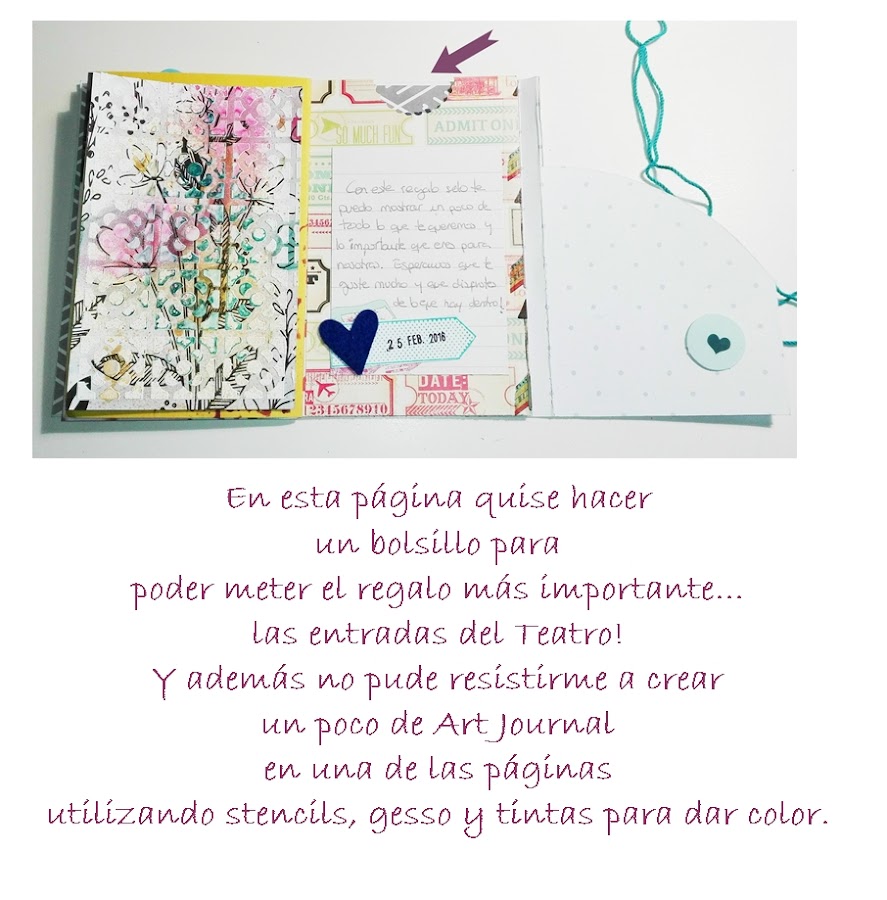 SO MUCH FUN
ADMIT ON
Con este regalo solo te
puedo mostrar un poco de
todo lo que te queremos y
lo importante que eres para
nosotros. Esperamos que te
guste mucho y que disfrutes
de lo que hay dentro!
25 FEB. 2016
DATE:
TODAY
12345678910
En esta página quise hacer
un bolsillo para
poder meter el regalo más importante...
las entradas del Teatro!
Y además no pude resistirme a crear
un poco de Art Journal
en una de las páginas
utilizando stencils, gesso y tintas para dar color.